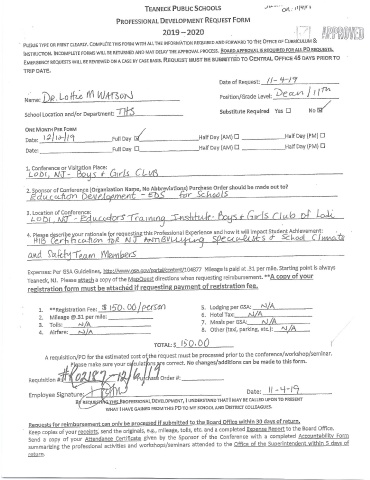 TEANECK PUBLIC SCHOOLS
PROFESSIONAL DEVELOPMENT REQUEST FORM
2019 – 2020
APPROVED
PLEASE TYPE OR PRINT CLEARLY. COMPLETE THIS FORM WITH ALL THE INFORMATION REQUIRED AND FORWARD TO THE OFFICE OF CURRICULUM &
INSTRUCTION. INCOMPLETE FORMS WILL BE RETURNED AND MAY DELAY THE APPROVAL PROCESS. BOARD APPROVAL IS REQUIRED FOR ALL PD REQUESTS.
EMERGENCY REQUESTS REVIEWED ON A CASE BY CASE BASIS. REQUEST MUST BE SUBMITTED TO CENTRAL OFFICE 45 DAYS PRIOR TO
TRIP DATE.
Date of Request: 11-4-19
Name: Dr. Lottie M WATSON Position/Grade Level: Dean/11th
School Location and/or Department: THS Substitute Required Yes ☐ No ☑
ONE MONTH PER FORM
Date: 12/13/19 Full Day ☑ Half Day (AM) ☐ Half Day (PM) ☐
Date: Full Day ☐ Half Day (AM) ☐ Half Day (PM) ☐
1. Conference or Visitation Place:
LODI, NJ - Boys & Girls CLUB
2. Sponsor of Conference (Organization Name, No Abbreviations) Purchase Order should be made out to?
Education Development - EDS for Schools
3. Location of Conference:
LODI, NJ - Educators Training Institute - Boys & Girls Club of Lodi
4. Please describe your rationale for requesting this Professional Experience and how it will impact Student Achievement:
HIB Certification for NJ AntiBullying Specialists & School Climate
and Safety Team Members
Expenses: Per GSA Guidelines, http://www.gsa.gov/portal/content/104877 Mileage is paid at .31 per mile. Starting point is always
Teaneck, NJ. Please attach a copy of the MapQuest directions when requesting reimbursement. **A copy of your
registration form must be attached if requesting payment of registration fee.
1. **Registration Fee: $150.00/person
2. Mileage @.31 per mile:
3. Tolls: N/A
4. Airfare: N/A
5. Lodging per GSA: N/A
6. Hotel Tax: N/A
7. Meals per GSA: N/A
8. Other (taxi, parking, etc.): N/A
TOTAL: $ 150.00
A requisition/PO for the estimated cost of the request must be processed prior to the conference/workshop/seminar.
Please make sure your calculations are correct. No changes/additions can be made to this form.
Requisition # Purchase Order #:
Employee Signature: Date: 11-4-19
BY REQUESTING THIS PROFESSIONAL DEVELOPMENT, I UNDERSTAND THAT I MAY BE CALLED UPON TO PRESENT
WHAT I HAVE GAINED FROM THIS PD TO MY SCHOOL AND DISTRICT COLLEAGUES.
Requests for reimbursement can only be processed if submitted to the Board Office within 30 days of return.
Keep copies of your receipts, send the originals, e.g., mileage, tolls, etc. and a completed Expense Report to the Board Office.
Send a copy of your Attendance Certificate given by the Sponsor of the Conference with a completed Accountability Form
summarizing the professional activities and workshops/seminars attended to the Office of the Superintendent within 5 days of
return.